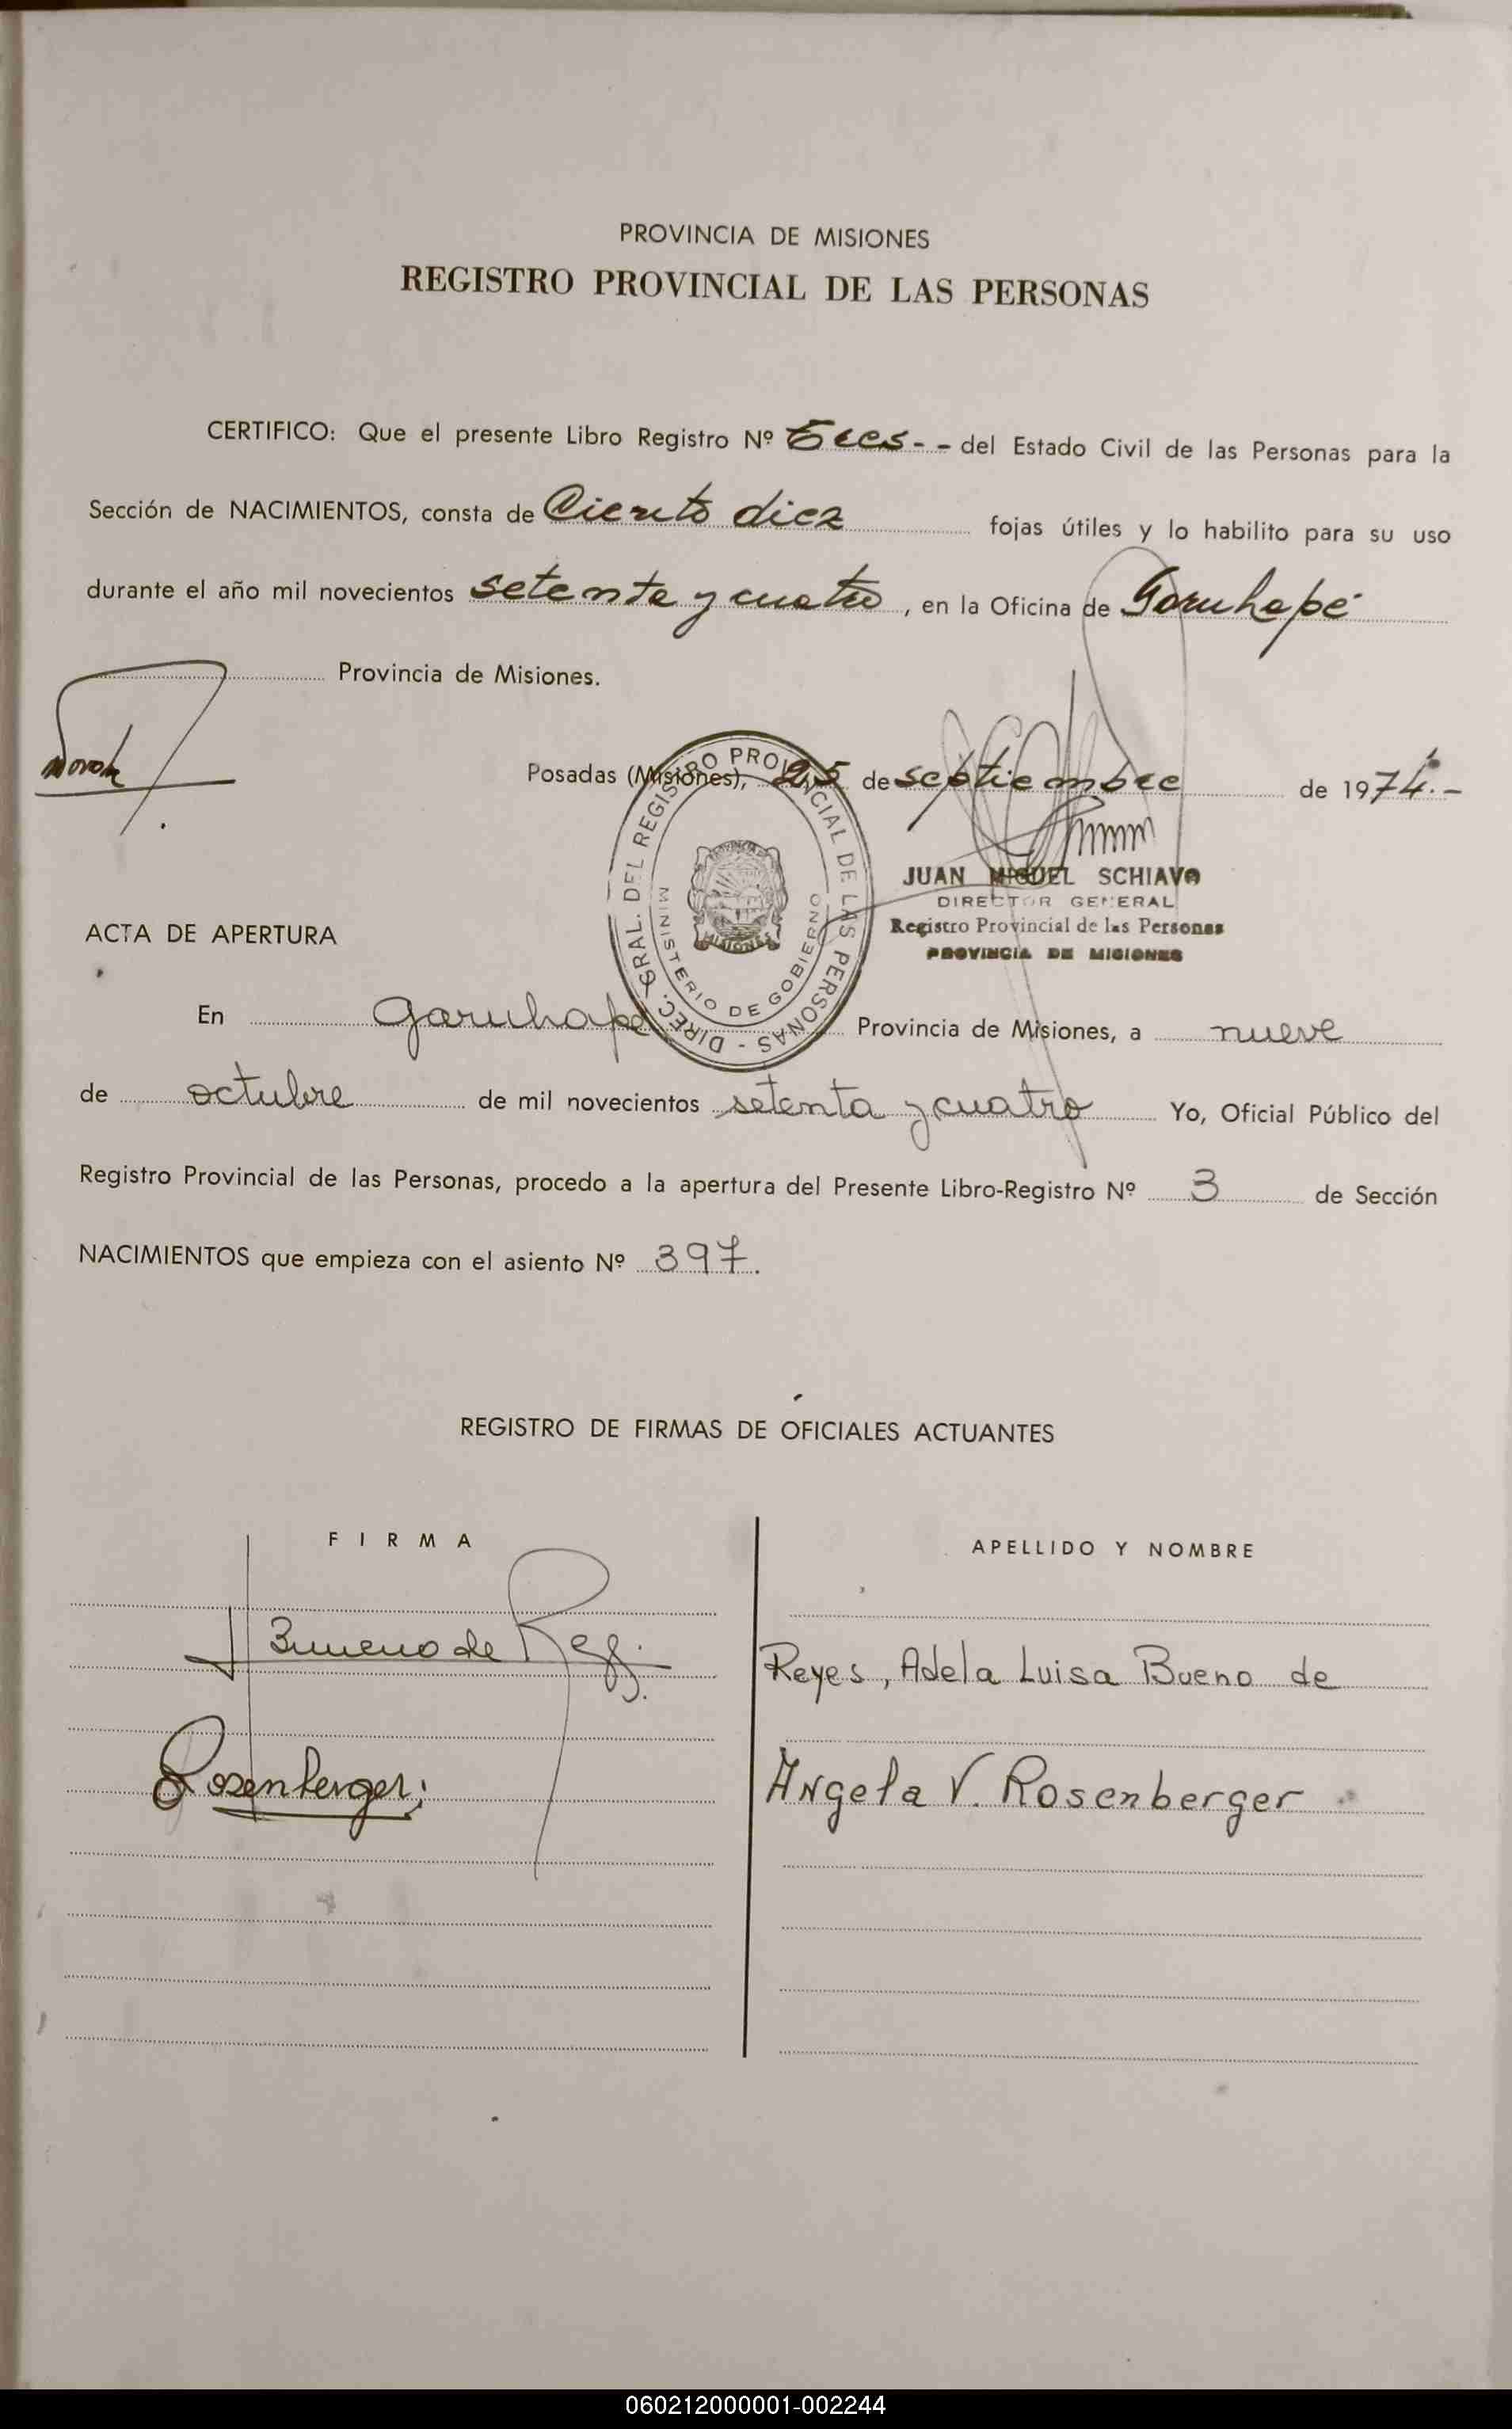 PROVINCIA DE MISIONES
REGISTRO PROVINCIAL DE LAS PERSONAS
CERTIFICO: Que el presente Libro Registro Nº Tres - - del Estado Civil de las Personas para la
Sección de NACIMIENTOS, consta de Ciento diez fojas útiles y lo habilito para su uso
durante el año mil novecientos setenta y cuatro, en la Oficina de Garuhapé
Provincia de Misiones.
Posadas (Misiones), 25 de septiembre de 1974.-
DIREC. GRAL. DEL REGISTRO PROVINCIAL DE LAS PERSONAS -
MINISTERIO DE GOBIERNO
MISIONES
JUAN MIGUEL SCHIAVO
DIRECTOR GENERAL
Registro Provincial de las Personas
PROVINCIA DE MISIONES
ACTA DE APERTURA
En Garuhape Provincia de Misiones, a nueve
de octubre de mil novecientos setenta y cuatro Yo, Oficial Público del
Registro Provincial de las Personas, procedo a la apertura del Presente Libro-Registro Nº 3 de Sección
NACIMIENTOS que empieza con el asiento Nº 397.
REGISTRO DE FIRMAS DE OFICIALES ACTUANTES
FIRMA APELLIDO Y NOMBRE
Reyes, Adela Luisa Bueno de
Rosenberger; Angela V. Rosenberger
060212000001-002244